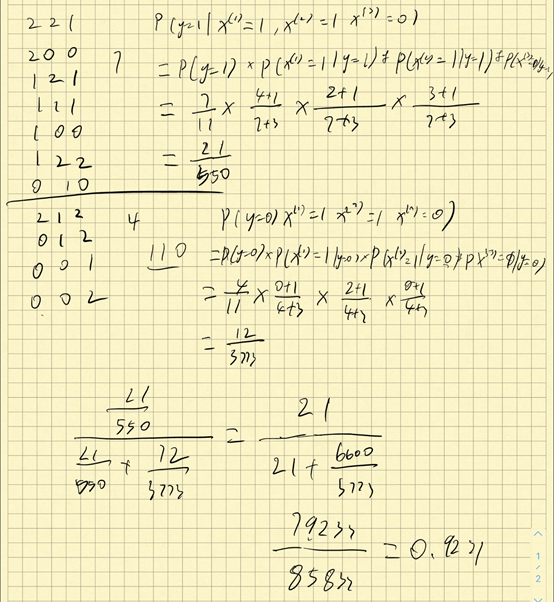 2 2 1
2 0 0
1 2 1
1 1 1
1 0 0
1 2 2
0 1 0
7
P(y=1 | x⁽¹⁾=1, x⁽²⁾=1 x⁽³⁾=0)
= P(y=1) × P(x⁽¹⁾=1|y=1) × P(x⁽²⁾=1|y=1) × P(x⁽³⁾=0|y=1)
= 7/11 × 4+1/7+3 × 2+1/7+3 × 3+1/7+3
= 21/550
2 1 2
0 1 2
0 0 1
0 0 2
4
1 1 0
P(y=0) x⁽¹⁾=1 x⁽²⁾=1 x⁽³⁾=0)
= P(y=0) × P(x⁽¹⁾=1|y=0) × P(x⁽²⁾=1|y=0) × P x⁽³⁾=0|y=0)
= 4/11 × 0+1/4+3 × 2+1/4+3 × 0+1/4+3
= 12/3773
21/550 / 21/550 + 12/3773 = 21 / 21 + 6600/3773
79233/85833 = 0.9231
1
/
2